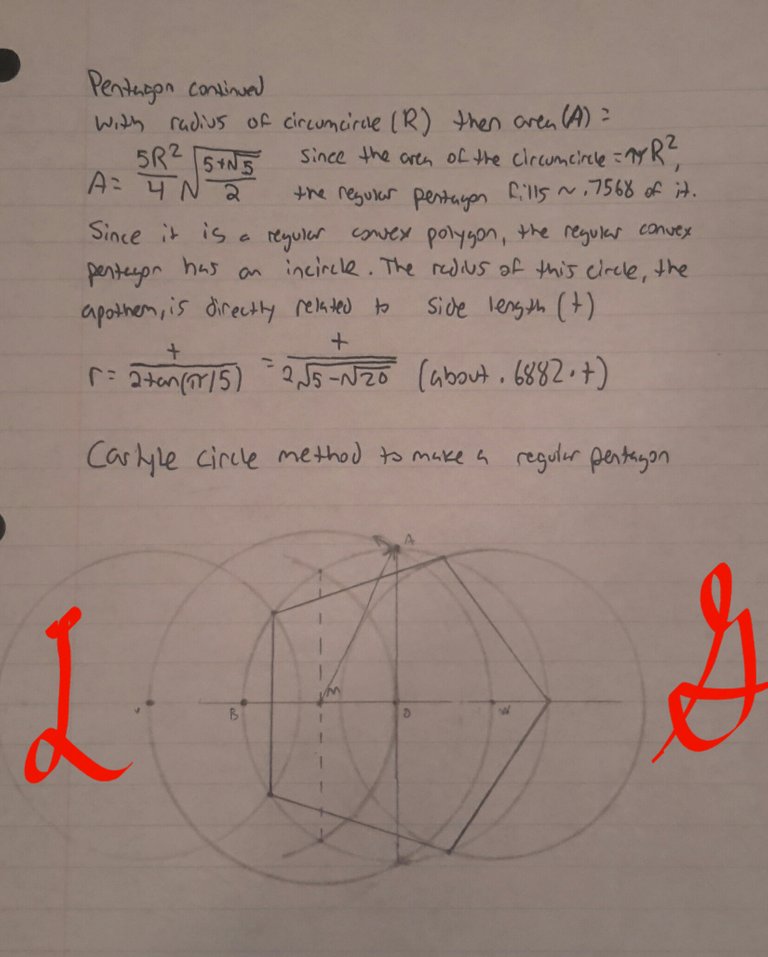 Pentagon continued
With radius of circumcircle (R) then area (A) =
A = 5R²/4 √((5+√5)/2) Since the area of the circumcircle = πR²,
the regular pentagon fills ~ .7568 of it.
Since it is a regular convex polygon, the regular convex
pentagon has an incircle. The radius of this circle, the
apothem, is directly related to side length (t)
r = t/(2tan(π/5)) = t/(2√(5-√20)) (about .6882·t)
Carlyle circle method to make a regular pentagon
A
M
V B O W
L G